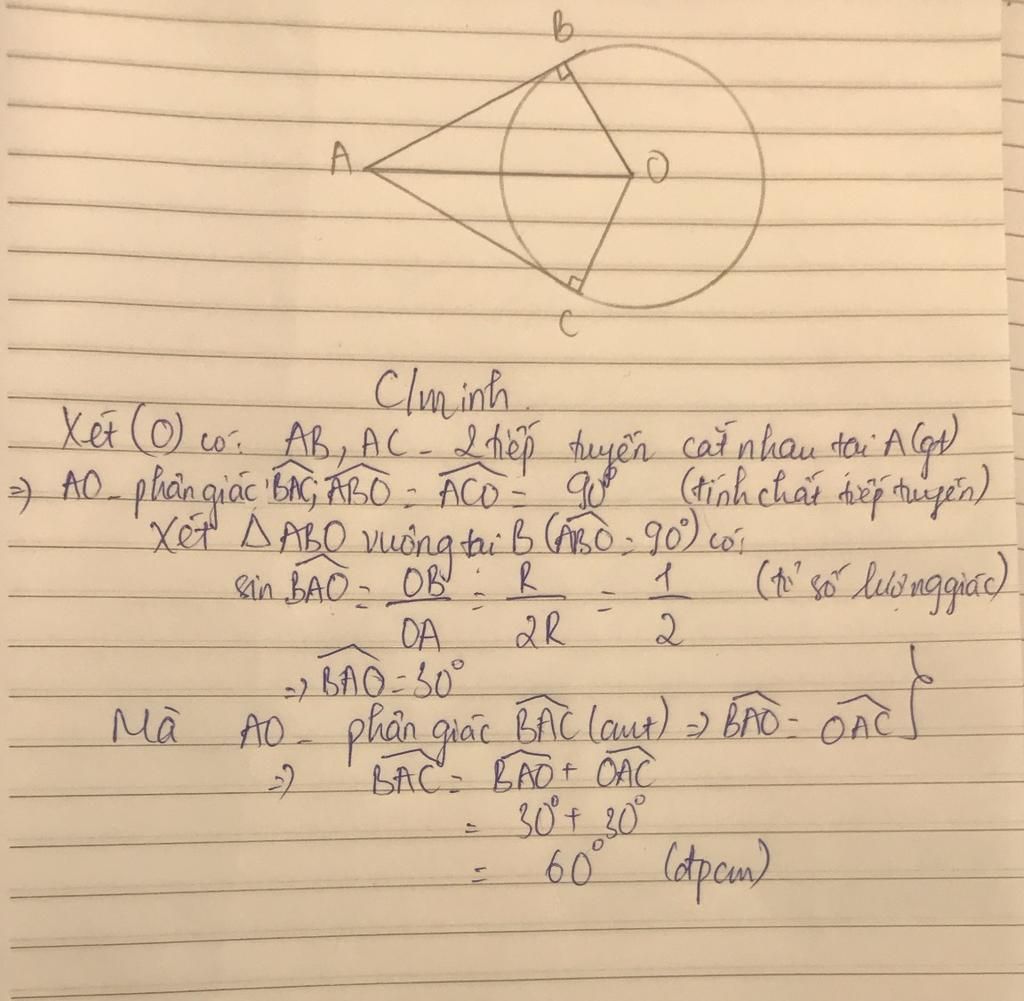 B
A
O
C
C/minh
Xét (O) có: AB, AC - 2 tiếp tuyến cắt nhau tại A (gt)
=> AO - phân giác \widehat{BAC}; \widehat{ABO} = \widehat{ACO} = 90° (tính chất tiếp tuyến)
Xét △ABO vuông tại B (\widehat{ABO} = 90°) có:
sin \widehat{BAO} = \frac{OB}{OA} = \frac{R}{2R} = \frac{1}{2} (tỉ số lượng giác)
=> \widehat{BAO} = 30°
Mà AO - phân giác \widehat{BAC} (cmt) => \widehat{BAO} = \widehat{OAC} }
=> \widehat{BAC} = \widehat{BAO} + \widehat{OAC}
= 30° + 30°
= 60° (đpcm)